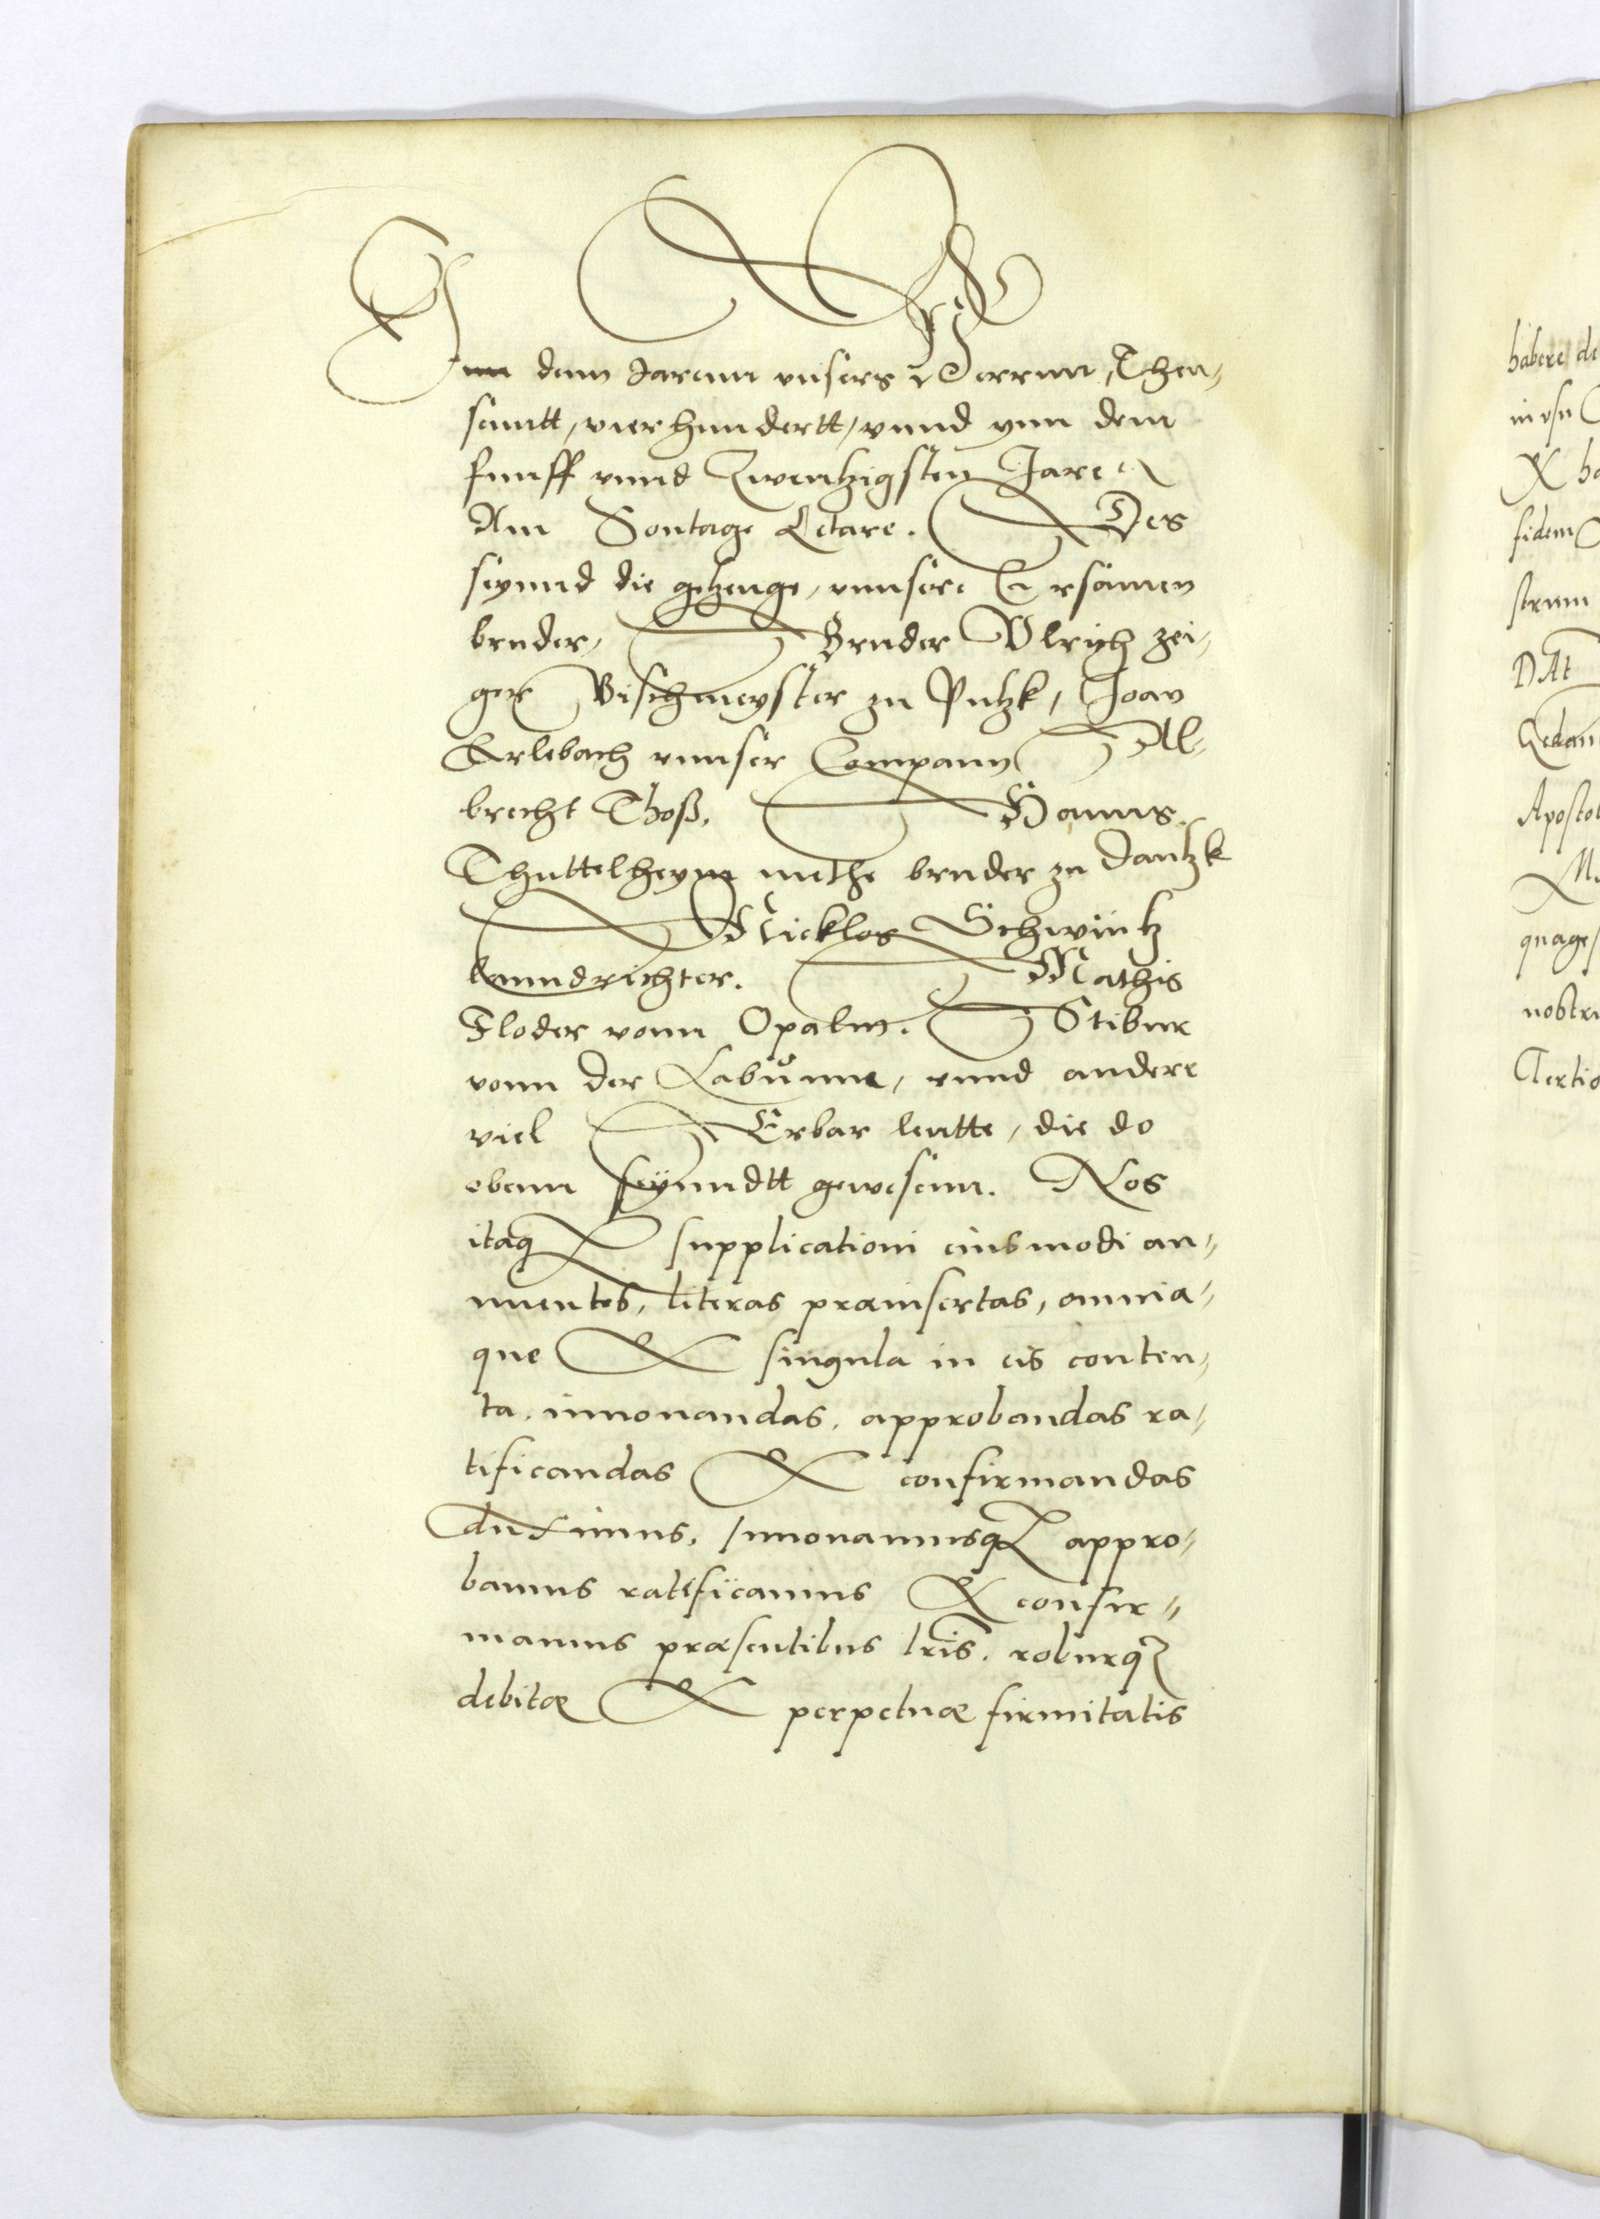 Inn dem Jarenn vnsers Herrnn, Theu⸗
senntt, vierhundertt, vnnd ynn dem
funff vnnd Zwentzigsten Jare
Am Sontage Letare. Des
seynnd die getzeuge, vnnsere Ersamen
bruder, Bruder Vlrych zei⸗
ger Vischmeyster zu Putzk, Joan
Erlebach vnnser Compann Al⸗
brecht Thoß, Hanns
Thuttelheym mithe bruder zu Dantzk
Nicklos Schwintz
lanndrichter. Mathis
Floder vonn Opalin. Stibur
vonn der Labůnne, vnnd andere
viel Erbar leutte, die do
obenn seynndtt gewesenn. Nos
itaq supplicationi eiusmodi an⸗
nuentes, literas præinsertas, omnia⸗
que & singula in eis conten⸗
ta, innouandas, approbandas ra⸗
tificandas & confirmandas
duximus, Innouamusq appro⸗
bamus ratificamus & confir⸗
mamus præsentibus lris. roburq
debitæ & perpetuæ firmitatis
habere de
in usu
X ha
fidem
strum
DAt
Gedan
Apostol
quage
nostri
Tertio